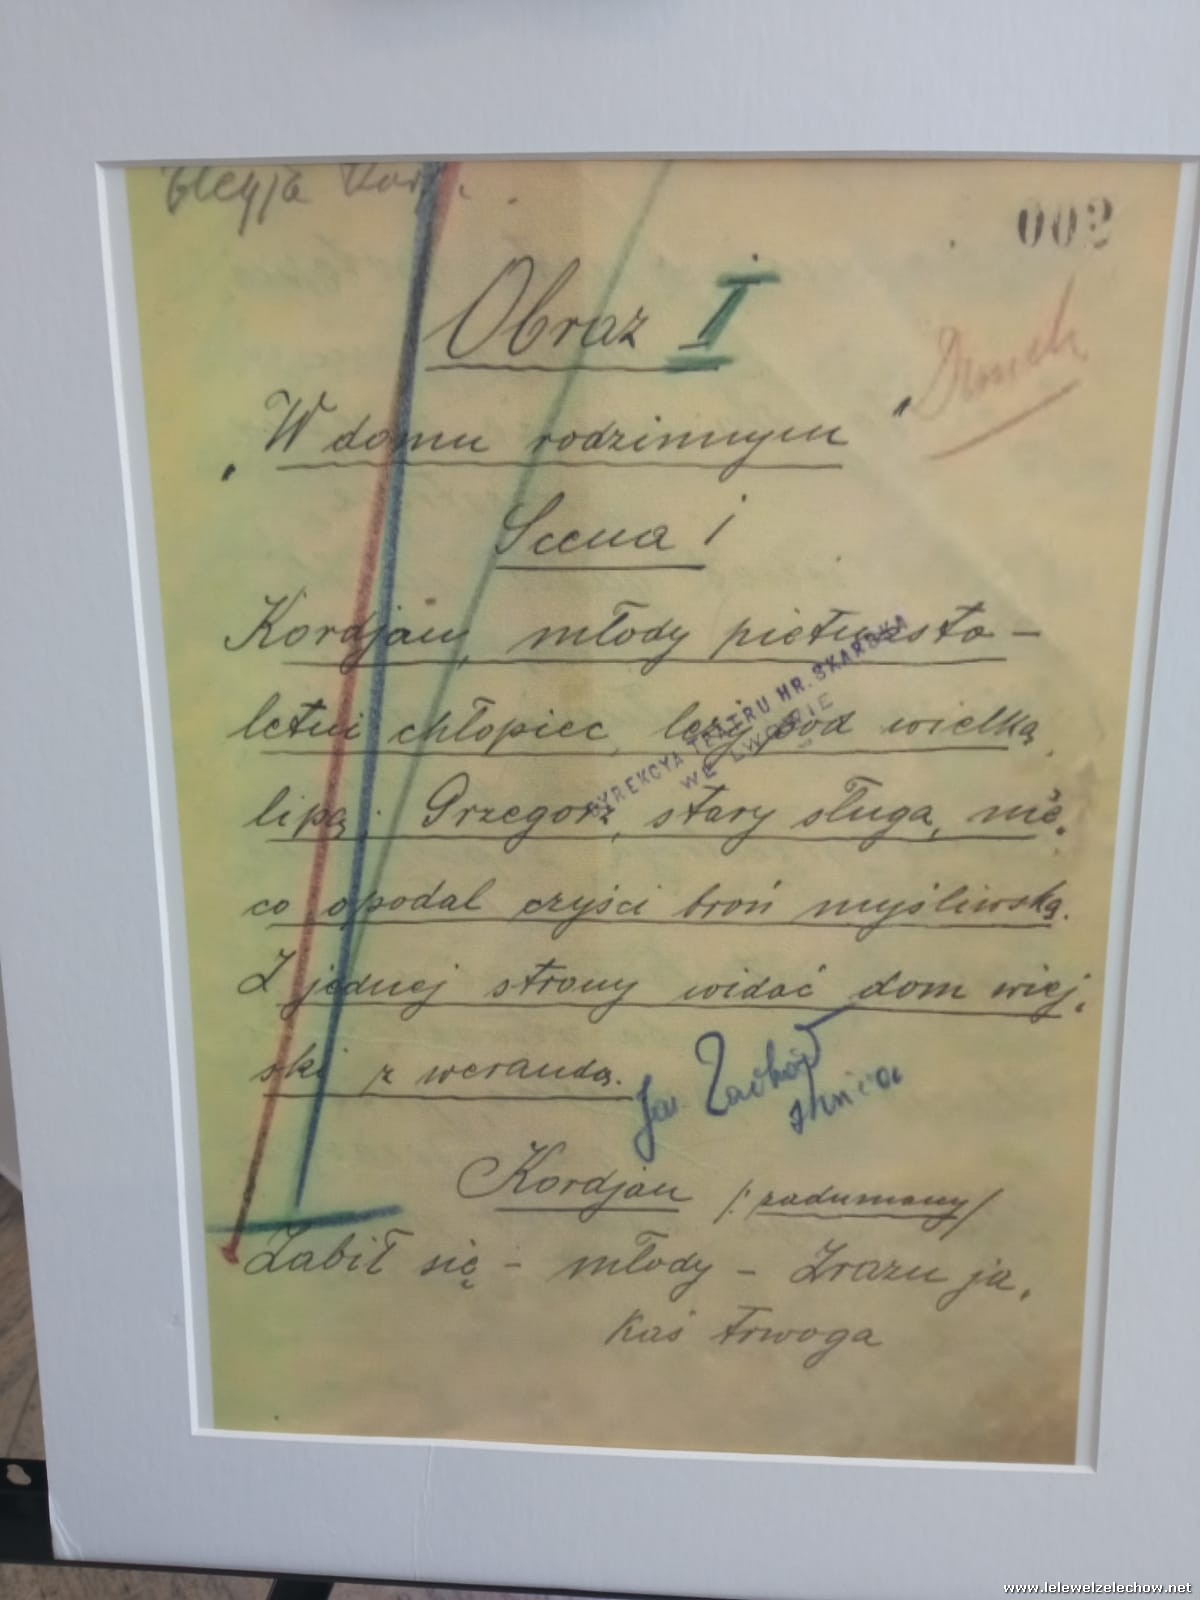 002
Obraz I
"W domu rodzinnym"
Scena 1
Kordjan, młody pietnasto-
letni chłopiec, leży pod wielką
lipą; Grzegorz, stary sługa, nie-
co opodal czyści broń myśliwską.
Z jednej strony widać dom wiej-
ski z werandą.
DYREKCYA TEATRU HR. SKARBKA
WE LWOWIE
Kordjan /: zadumany/
Zabił się - młody - Zrazu ja-
kaś trwoga
www.lelewelzelechow.net